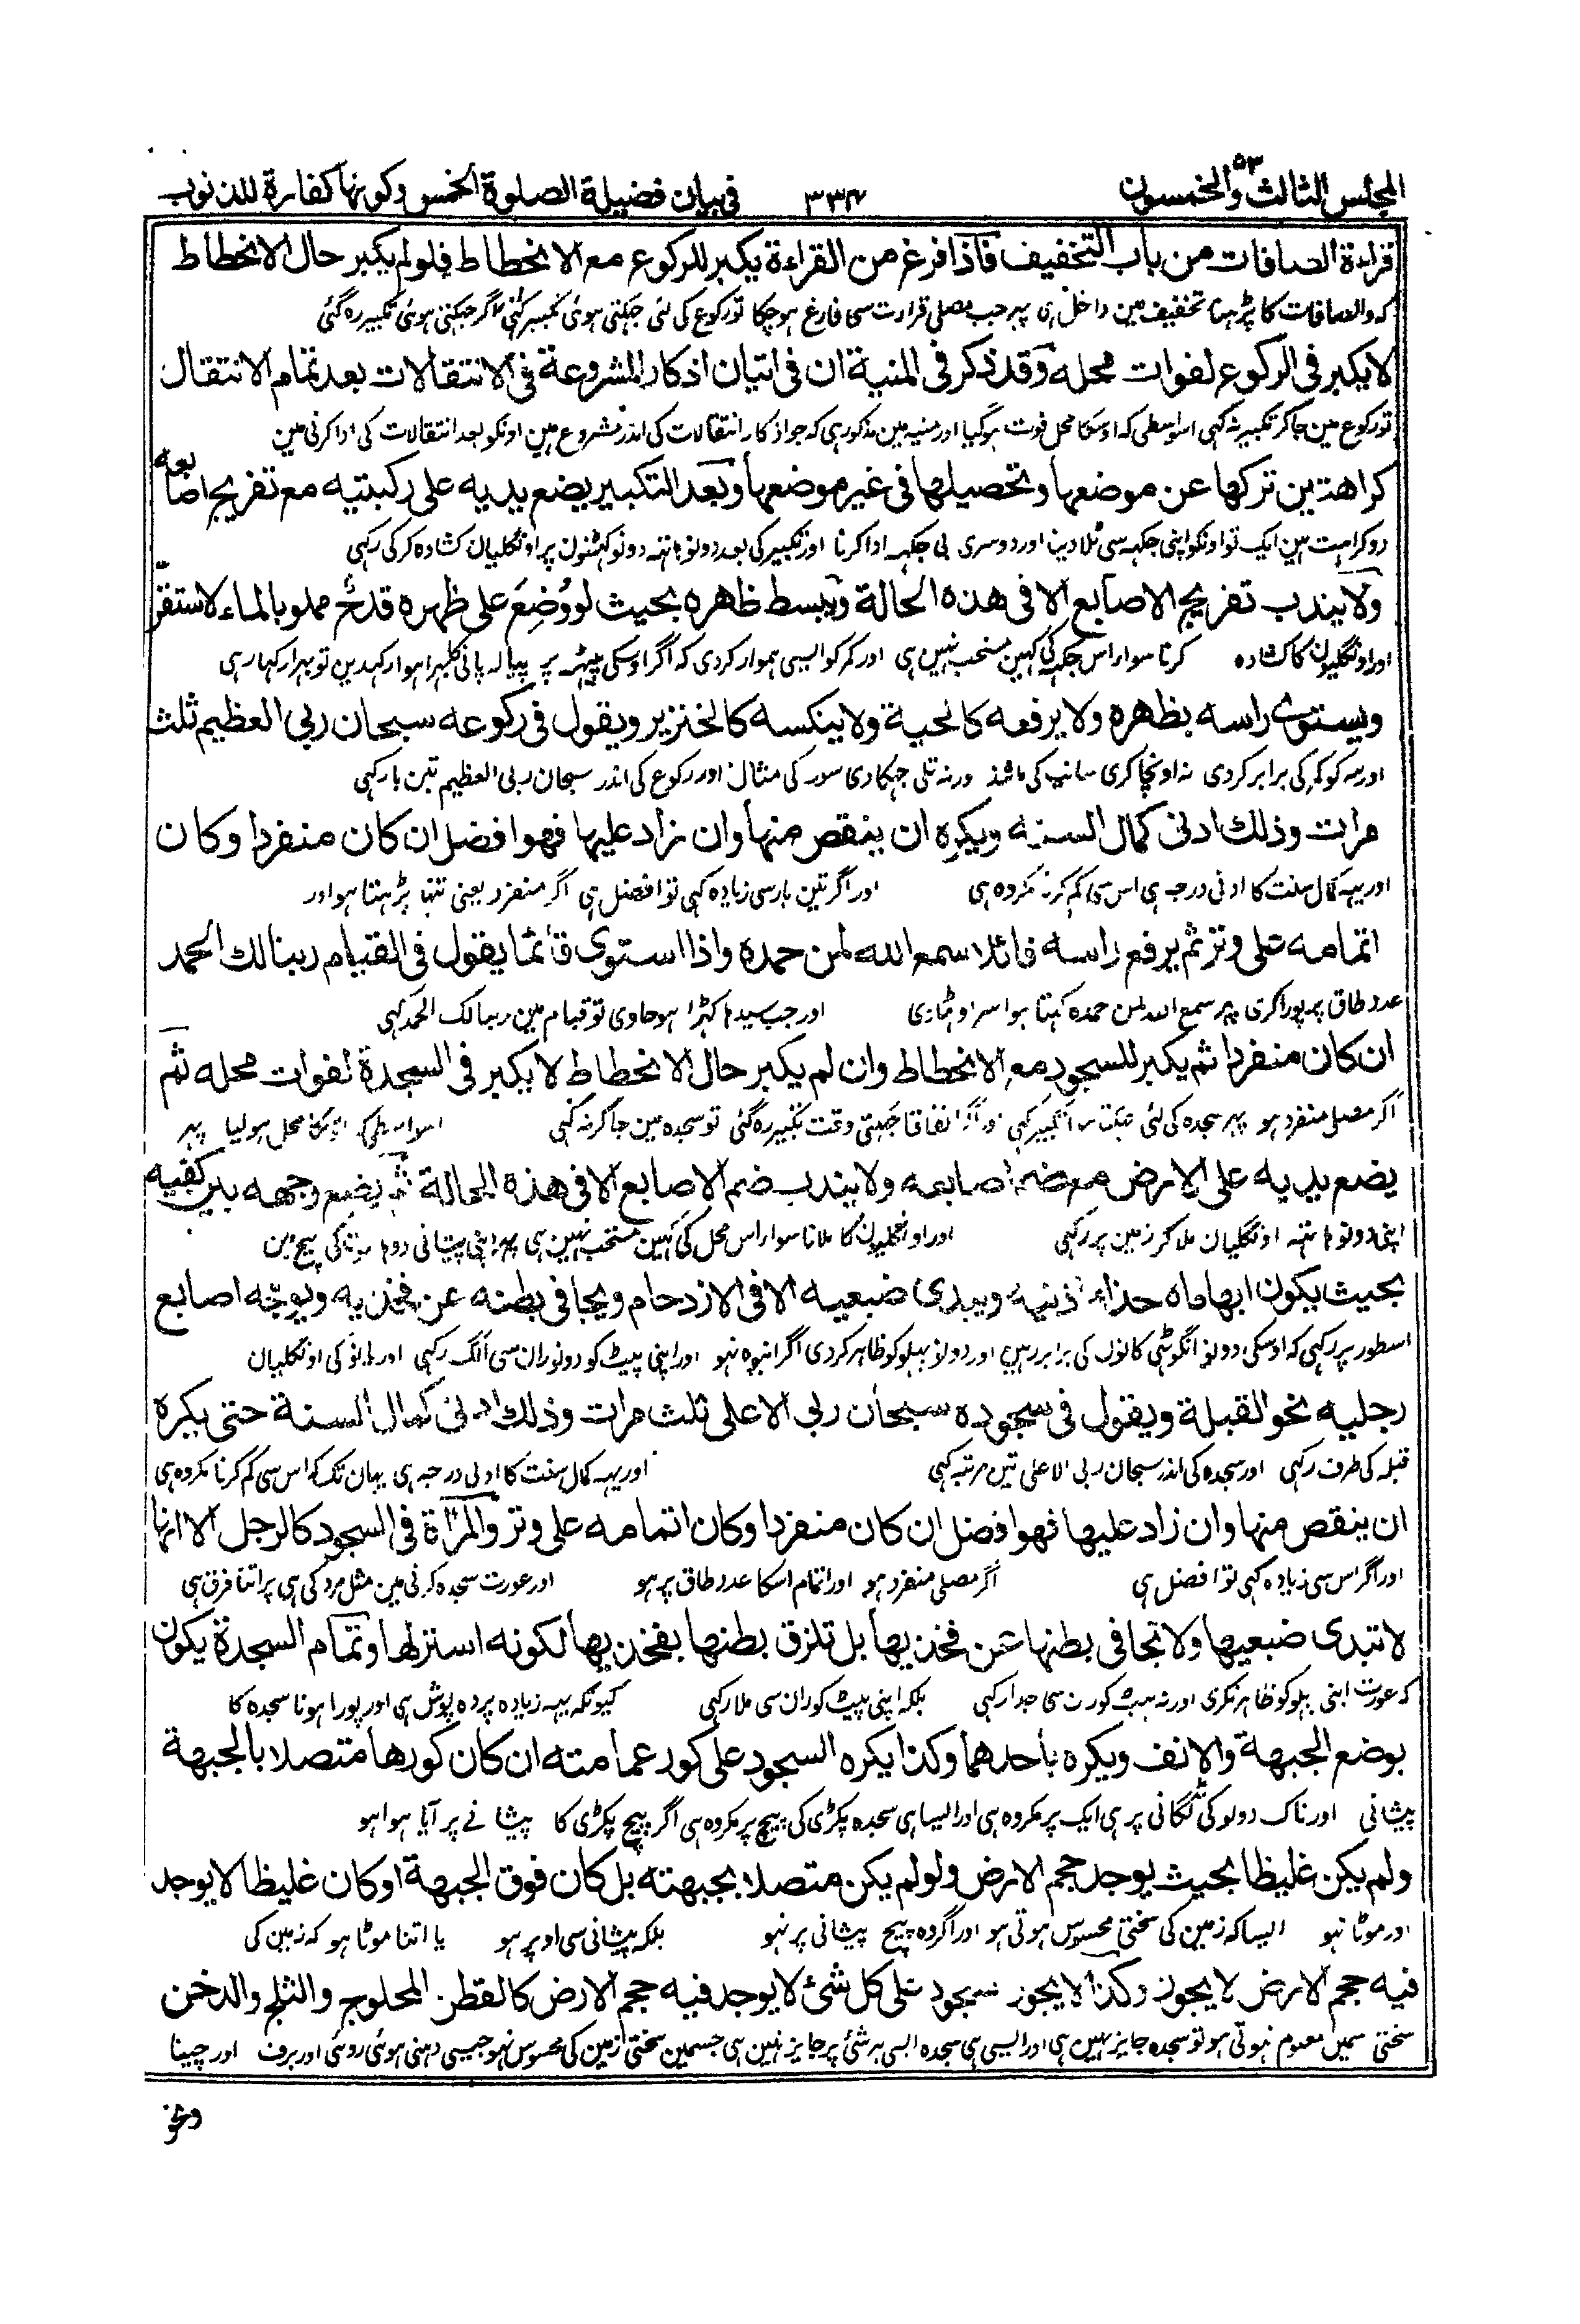 المجلس الثالث والخمسون ٥٣
٣٣٤
فى بيان فضيلة الصلوة الخمس وكونها كفارة للذنوب
قراءة الصافات من باب التخفيف فاذا فرغ من القراءة يكبر للركوع مع الانحطاط فلو لم يكبر حال الانحطاط
که والصافات کا پڑہنا تخفیف مین داخل ہی پہر جب مصلی قراءت سی فارغ ہوچکا تو رکوع کی لئی جہکتی ہوئی تکبیر کہی اگر جہکتی ہوئی تکبیر رہ گئی
لا يكبر فى الركوع لفوات محله وقد ذكر فى المنية ان فى اتيان اذكار المشروعة فى الانتقالات بعد تمام الانتقال
تو رکوع مین جاکر تکبیر نہ کہی اسواسطی که اوسکا محل فوت ہوگیا اور منیه مین مذکور ہی که جو اذکار انتقالات کی اندر مشروع ہین اونکو بعد انتقالات کی ادا کرنی مین
كراهتين تركها عن موضعها وتحصيلها فى غير موضعها وبعد التكبير يضع يديه على ركبتيه مع تفريج اصابعه
دو کراہت ہین ایک تو اونکو اپنی جکہه سی ٹلادینا اور دوسری بی جکہه ادا کرنا اور تکبیر کی بعد دونو ہاتہه دونو کہٹنون پر اونگلیان کشادہ کرکی رکہی
ولا يندب تفريج الاصابع الا فى هذه الحالة ويبسط ظهره بحيث لو وُضِعَ على ظهره قدحٌ مملو بالماء لاستقرّ
اور اونگلیون کا کشادہ کرنا سوا اس جکہه کی کہین مستحب نہین ہی اور کمر کو ایسی ہموار کردی که اگر اوسکی پیٹہه پر پیاله پانی کا بہرا ہوا رکہدین تو ٹہرا رہی
ويستوى راسه بظهره ولا يرفعه كالحية ولا ينكسه كالخنزير ويقول فى ركوعه سبحان ربى العظيم ثلث
اور سر کو کمر کی برابر کردی نه اونچا کری سانپ کی مانند ورنه تلی جہکادی سور کی مثال اور رکوع کی اندر سبحان ربی العظیم تین بار کہی
مرات وذلك ادنى كمال السنه ويكره ان ينقص منها وان زاد عليها فهو افضل ان كان منفردا وكان
اور یہه کمال سنت کا ادنی درجه ہی اس سی کم کرنا مکروہ ہی اور اگر تین بار سی زیادہ کہی تو افضل ہی اگر منفرد یعنی تنہا پڑہتا ہو اور
اتمامه على وتر ثم يرفع راسه قائلا سمع الله لمن حمده واذا استوى قائما يقول فى القيام ربنا لك الحمد
عدد طاق پر پورا کری پہر سمع الله لمن حمده کہتا ہوا سر اوٹہاوی اور جب سیدہا کہڑا ہو جاوی تو قیام مین ربنا لک الحمد کہی
ان كان منفردا ثم يكبر للسجود مع الانحطاط وان لم يكبر حال الانحطاط لا يكبر فى السجدة لفوات محله ثم
اگر مصلی منفرد ہو پہر سجدہ کی لئی تکبیر کہی اتفاقا جہکتی وقت تکبیر رہ گئی تو سجدہ مین جاکر نه کہی اسواسطی محل ہولیا پہر
يضع يديه على الارض مع ضم اصابعه ولا يندب ضم الاصابع الا فى هذه الحالة ثم يضع وجهه بين كفيه
اپنی دونو ہاتہه اونگلیان ملاکر زمین پر رکہی اور اونگلیون کا ملانا سوا اس محل کی کہین مستحب نہین ہی پہر اپنی پیشانی دو ہاتہه کی بیچ مین
بحيث يكون ابهاماه حذاء اذنيه ويبدى ضبعيه الا فى الازدحام ويجافى بطنه عن فخذيه ويوجّه اصابع
اسطور پر رکہی که اوسکی دونو انگوٹہی کانون کی برابر رہین اور دونو پہلو کو ظاہر کردی اگر انبوہ نہو اور اپنی پیٹ کو دونو ران سی الگ رکہی اور پانو کی اونگلیان
رجليه نحو القبلة ويقول فى سجوده سبحان ربى الاعلى ثلث مرات وذلك ادنى كمال السنة حتى يكره
قبله کی طرف رکہی اور سجدہ کی اندر سبحان ربی الاعلی تین مرتبه کہی اور یہه کمال سنت کا ادنی درجه ہی یہان تک که اس سی کم کرنا مکروہ ہی
ان ينقص منها وان زاد عليها فهو افضل ان كان منفردا وكان اتمامه على وتر والمرأة فى السجود كالرجل الا انها
اور اگر اس سی زیادہ کہی تو افضل ہی اگر مصلی منفرد ہو اور اتمام اسکا عدد طاق پر ہو اور عورت سجدہ کرنی مین مثل مرد کی ہی پر اتنا فرق ہی
لا تبدى ضبعيها ولا تجافى بطنها عن فخذيها بل تلزق بطنها بفخذيها لكونه استر لها وتمام السجدة يكون
که عورت اپنی پہلو کو ظاہر نکری اور نه پیٹ کو ران سی جدا رکہی بلکه اپنی پیٹ کو ران سی ملا رکہی کیونکه یہه زیادہ پردہ پوش ہی اور پورا ہونا سجدہ کا
بوضع الجبهة والانف ويكره بأحدهما وكذا يكره السجود على كور عمامته ان كان كورها متصلا بالجبهة
پیشانی اور ناک دونو کی لگانی پر ہی ایک پر مکروہ ہی اور ایسا ہی سجدہ پگڑی کی پیچ پر مکروہ ہی اگر پیچ پگڑی کا پیشانے پر آیا ہوا ہو
ولم يكن غليظا بحيث يوجد حجم الارض ولو لم يكن متصلا بجبهته بل كان فوق الجبهة او كان غليظا لا يوجد
اور موٹا نہو ایسا که زمین کی سختی محسوس ہوتی ہو اور اگر وہ پیچ پیشانی پر نہو بلکه پیشانی سی اوپر ہو یا اتنا موٹا ہو که زمین کی
فيه حجم الارض لا يجوز وكذا لا يجوز سجود على كل شئ لا يوجد فيه حجم الارض كالقطن المحلوج والثلج والدخن
سختی سمین معلوم نہوتی ہو تو سجدہ جایز نہین ہی اور ایسی ہی سجدہ ایسی ہر شئی پر جایز نہین ہی جسمین سختی زمین کی محسوس نہو جیسی دہنی ہوئی روئی اور برف اور چینا